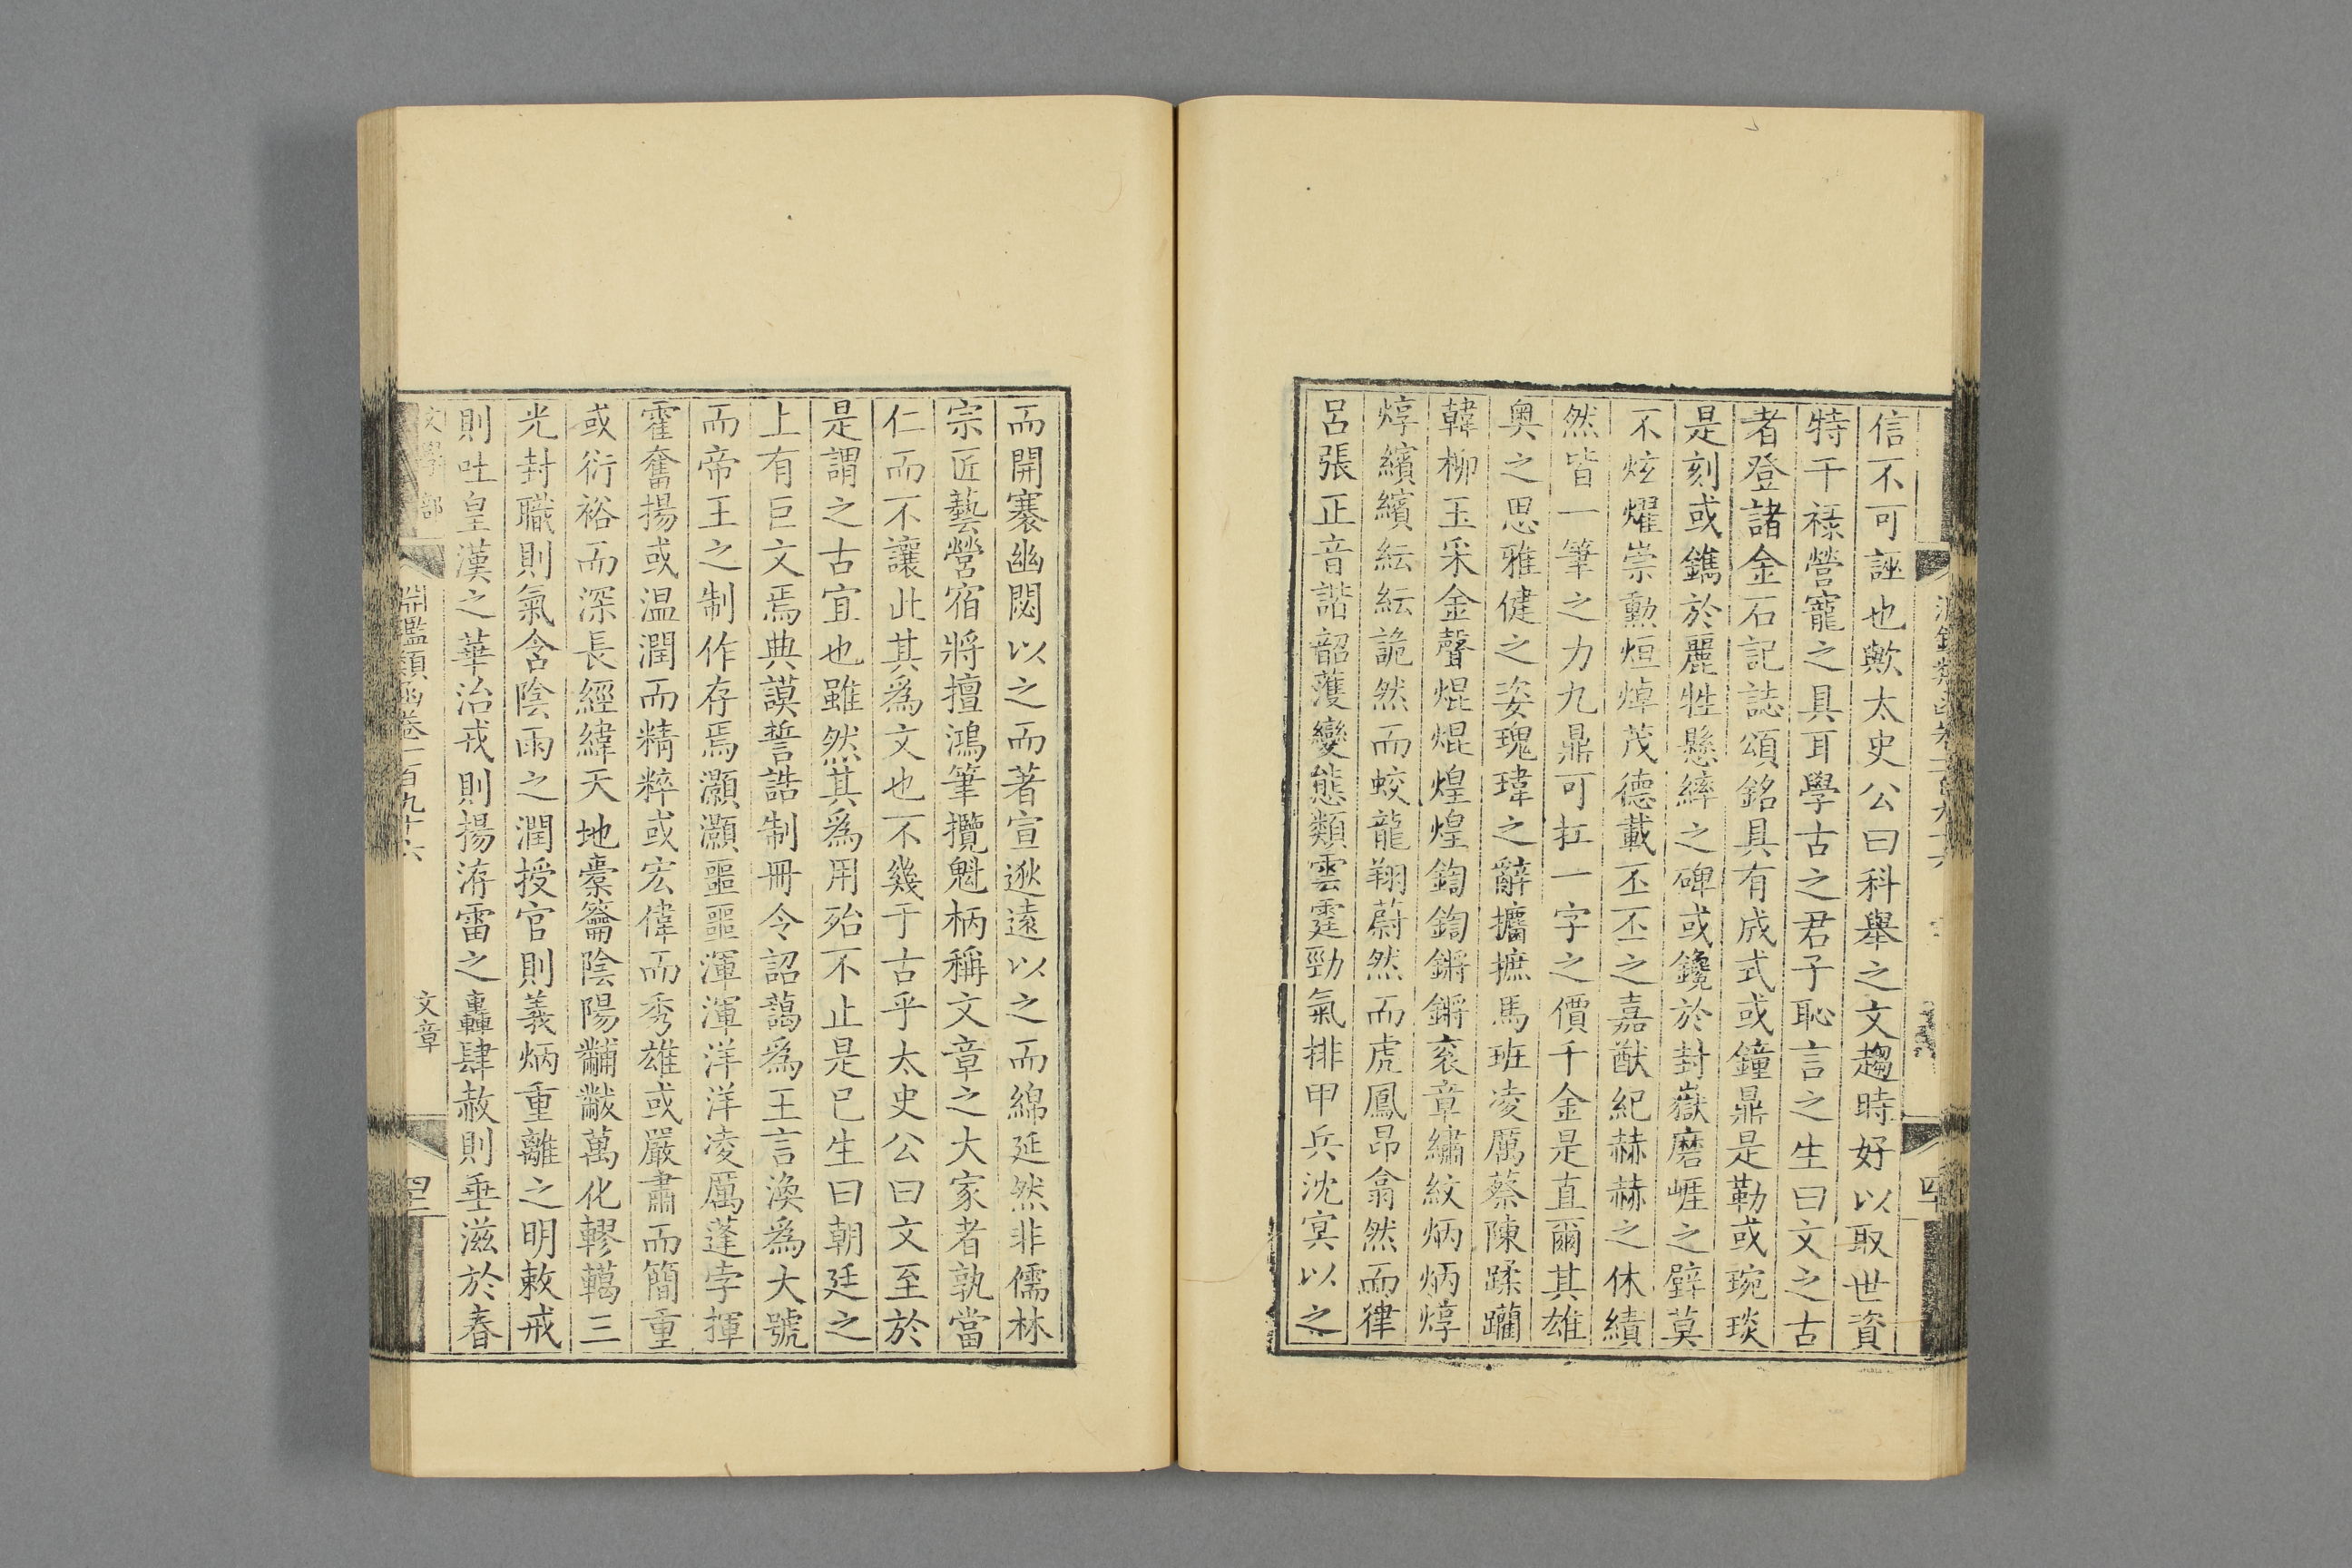 信不可誣也歟太史公曰科舉之文趨時好以取世資
特干祿營寵之具耳學古之君子恥言之生曰文之古
者登諸金石記誌頌銘具有成式或鐘鼎是勒或琬琰
是刻或鐫於麗牲懸繂之碑或鑱於封嶽磨崖之壁莫
不炫耀崇勲烜焯茂德載丕丕之嘉猷紀赫赫之休績
然皆一筆之力九鼎可扛一字之價千金是直爾其雄
奧之思雅健之姿瑰瑋之辭攟摭馬班凌厲蔡陳蹂躪
韓柳玉采金聲焜焜煌煌鍧鍧鏘鏘衮章繡紋炳炳焞
焞繽繽紜紜詭然而蛟龍翔蔚然而虎鳳昂翕然而律
呂張正音諧韶濩變態類雲霆勁氣排甲兵沈冥以之
而開褰幽閟以之而著宣逖遠以之而綿延然非儒林
宗匠藝營宿將擅鴻筆攬魁柄稱文章之大家者孰當
仁而不讓此其為文也不幾于古乎太史公曰文至於
是謂之古宜也雖然其為用殆不止是已生曰朝廷之
上有巨文焉典謨誓誥制冊令詔藹為王言渙為大號
而帝王之制作存焉灝灝噩噩渾渾洋洋凌厲蓬孛揮
霍奮揚或温潤而精粹或宏偉而秀雄或嚴肅而簡重
或衍裕而深長經緯天地橐籥陰陽黼黻萬化轇轕三
光封職則氣含陰雨之潤授官則義炳重離之明敕戒
則吐皇漢之華治戎則揚洊雷之轟肆赦則垂滋於春
文學部 淵鑑類函卷一百九十六 文章 四十一